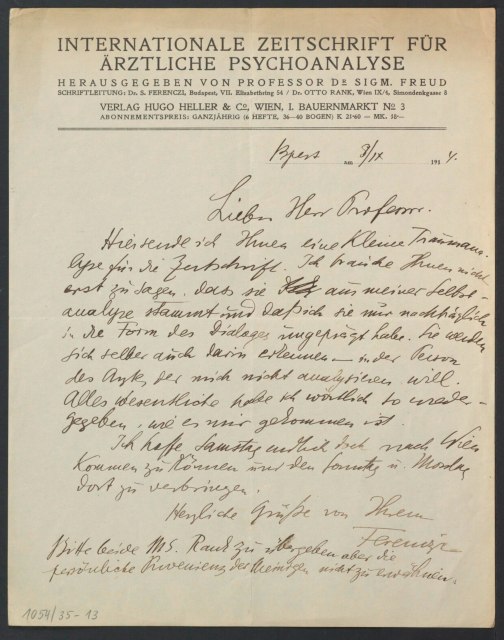 INTERNATIONALE ZEITSCHRIFT FÜR
ÄRZTLICHE PSYCHOANALYSE
HERAUSGEGEBEN VON PROFESSOR DR SIGM. FREUD
SCHRIFTLEITUNG: Dr. S. FERENCZI, Budapest, VII. Elisabethring 54 / Dr. OTTO RANK, Wien IX/4, Simondenkgasse 8
VERLAG HUGO HELLER & Co, WIEN, I. BAUERNMARKT No 3
ABONNEMENTSPREIS: GANZJÄHRIG (6 HEFTE, 36—40 BOGEN) K 21·60 — MK. 18·—
Bpest am 8/IX 1914.
Lieber Herr Professor.
Hier sende ich Ihnen eine kleine Traumana-
lyse für die Zeitschrift. Ich brauche Ihnen nicht
erst zu sagen, dass sie aus meiner Selbst-
analyse stammt und daß ich sie nur nachträglich
in die Form des Dialoges umgeprägt habe. Sie werden
sich selber auch darin erkennen — in der Person
des Arztes, der mich nicht analysieren will.
Alles wesentliche habe ich wörtlich so wieder-
gegeben, wie es mir gekommen ist.
Ich hoffe Samstag endlich doch nach Wien
kommen zu können und den Sonntag u. Montag
dort zu verbringen.
Herzliche Grüße von Ihrem
Ferenczi
Bitte beide MS. Rank zu übergeben aber die
persönliche Provenienz des Meinigen nicht zu erwähnen.
1054/35-13